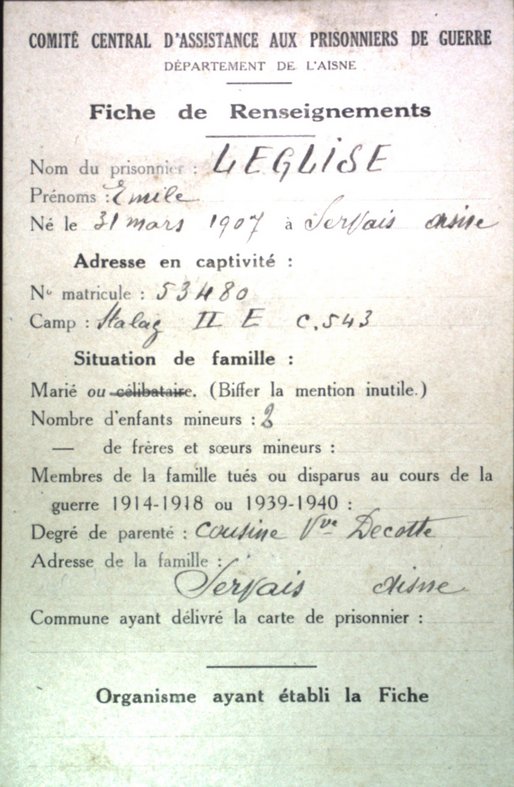 COMITÉ CENTRAL D'ASSISTANCE AUX PRISONNIERS DE GUERRE
DÉPARTEMENT DE L'AISNE
Fiche de Renseignements
Nom du prisonnier : LEGLISE
Prénoms : Emile
Né le 31 mars 1907 à Servais Aisne
Adresse en captivité :
No matricule : 53480
Camp : Stalag II E C.543
Situation de famille :
Marié ou célibataire. (Biffer la mention inutile.)
Nombre d'enfants mineurs : 2
— de frères et sœurs mineurs :
Membres de la famille tués ou disparus au cours de la
guerre 1914-1918 ou 1939-1940 :
Degré de parenté : cousine Vve Decotte
Adresse de la famille :
Servais Aisne
Commune ayant délivré la carte de prisonnier :
Organisme ayant établi la Fiche